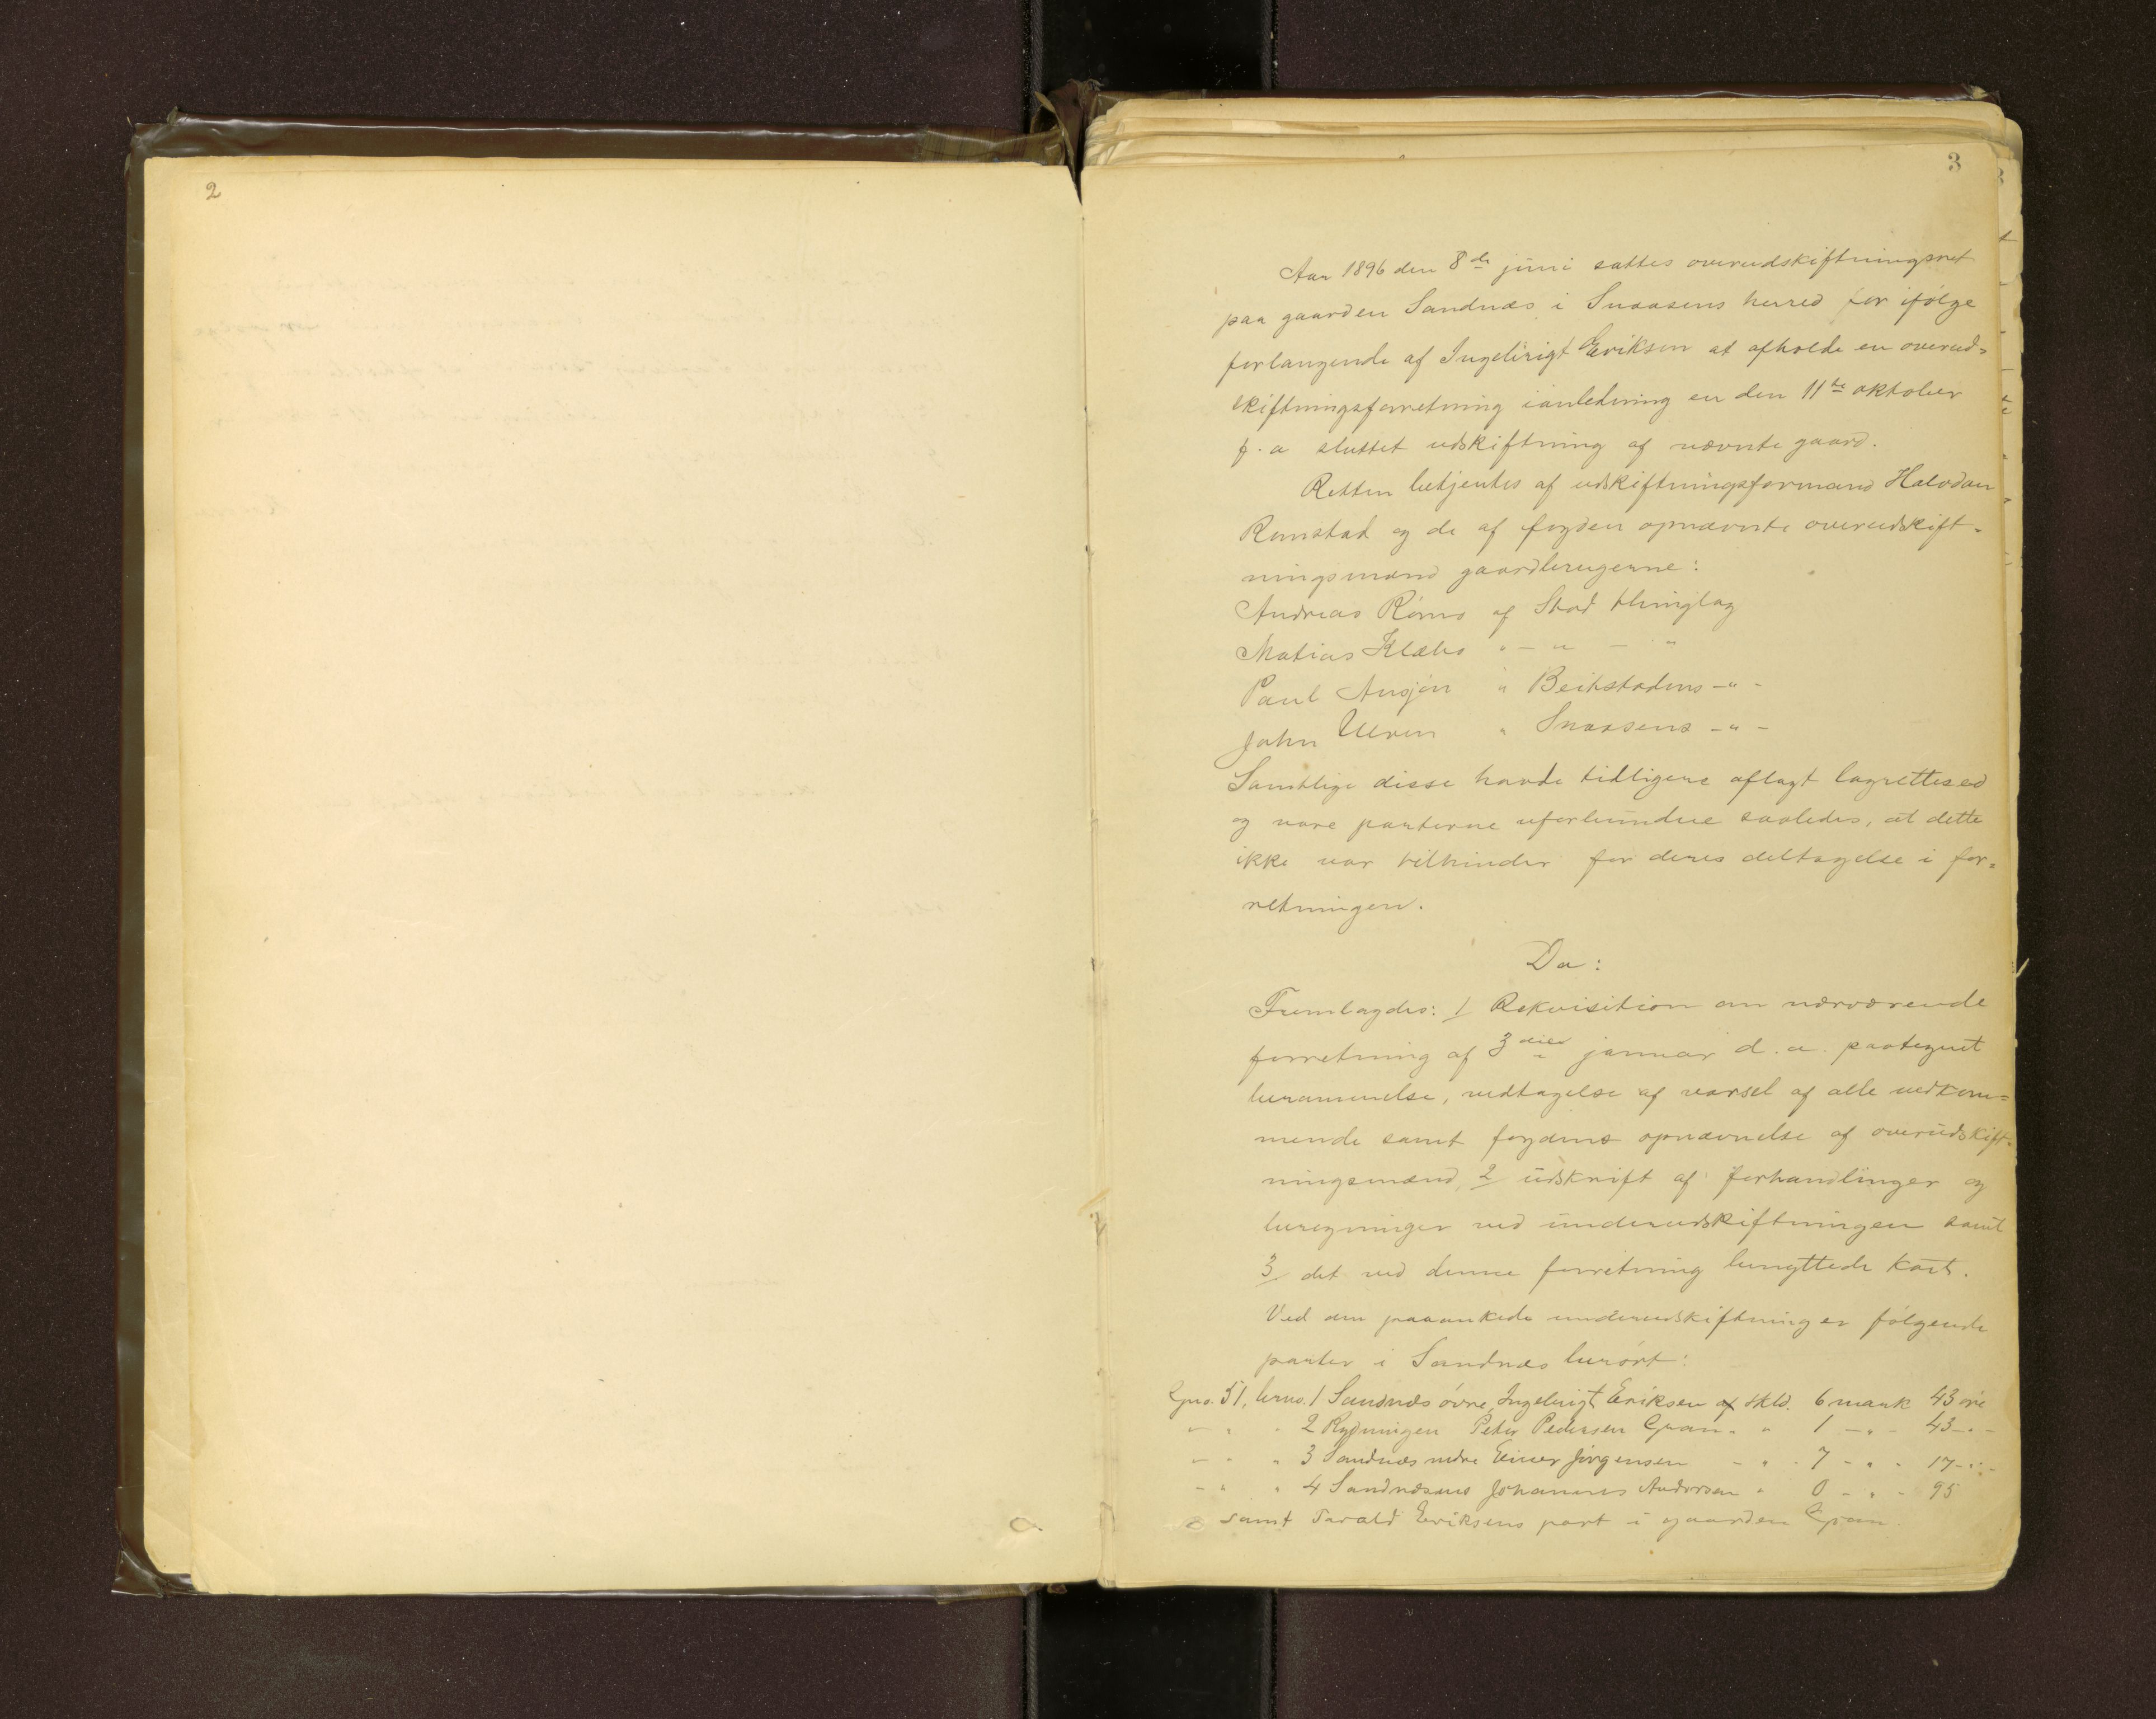 2
3
Aar 1896 den 8de juni sattes overudskiftningsret
paa gaarden Sandnæs i Snaasens herred for ifølge
forlangende af Ingebrigt Eriksen at afholde en overud=
skiftningsforretning ianledning en den 11te oktober
f. a sluttet udskiftning af nævnte gaard.
Retten betjentes af udskiftningsformand Halvdan
Romstad og de af fogden opnævnte overudskift-
ningsmænd gaardbrugerne:
Andreas Røms af Stod thinglag
Matias Klæbo " - " - "
Paul " Beitstadens - " -
John Ulven " Snaasens - " -
Samtlige disse havde tidligere aflagt lagrettesed
og vare parterne uforbundne saaledes, at dette
ikke var tilhinder for deres deltagelse i for=
retningen.
Da:
Fremlagdes: 1/ Rekvisition om nærværende
forretning af 3die januar d. a. paategnet
berammelse, vedtagelse af varsel af alle vedkom=
mende samt fogdens opnævnelse af overudskift-
ningsmænd, 2/ udskrift af forhandlinger og
beregninger ved underudskiftningen samt
3/ det ved denne forretning benyttede kart.
Ved den paaankede underudskiftning er følgende
parter i Sandnæs berørt:
Gno. 51, brno. 1 Sandnæs øvre, Ingebrigt Eriksen af skld. 6 mark 43 øre
" " " 2 Rydningen Peter Pedersen Gran - " 1 - " - 43 - " -
" " " 3 Sandnæs nedre Einer Jørgensen - " 7 - " - 17 - " -
- " " 4 Sandnæsmo Johannes Andorsen " 0 - " - 95
samt Tarald Eriksens part i gaarden Gran